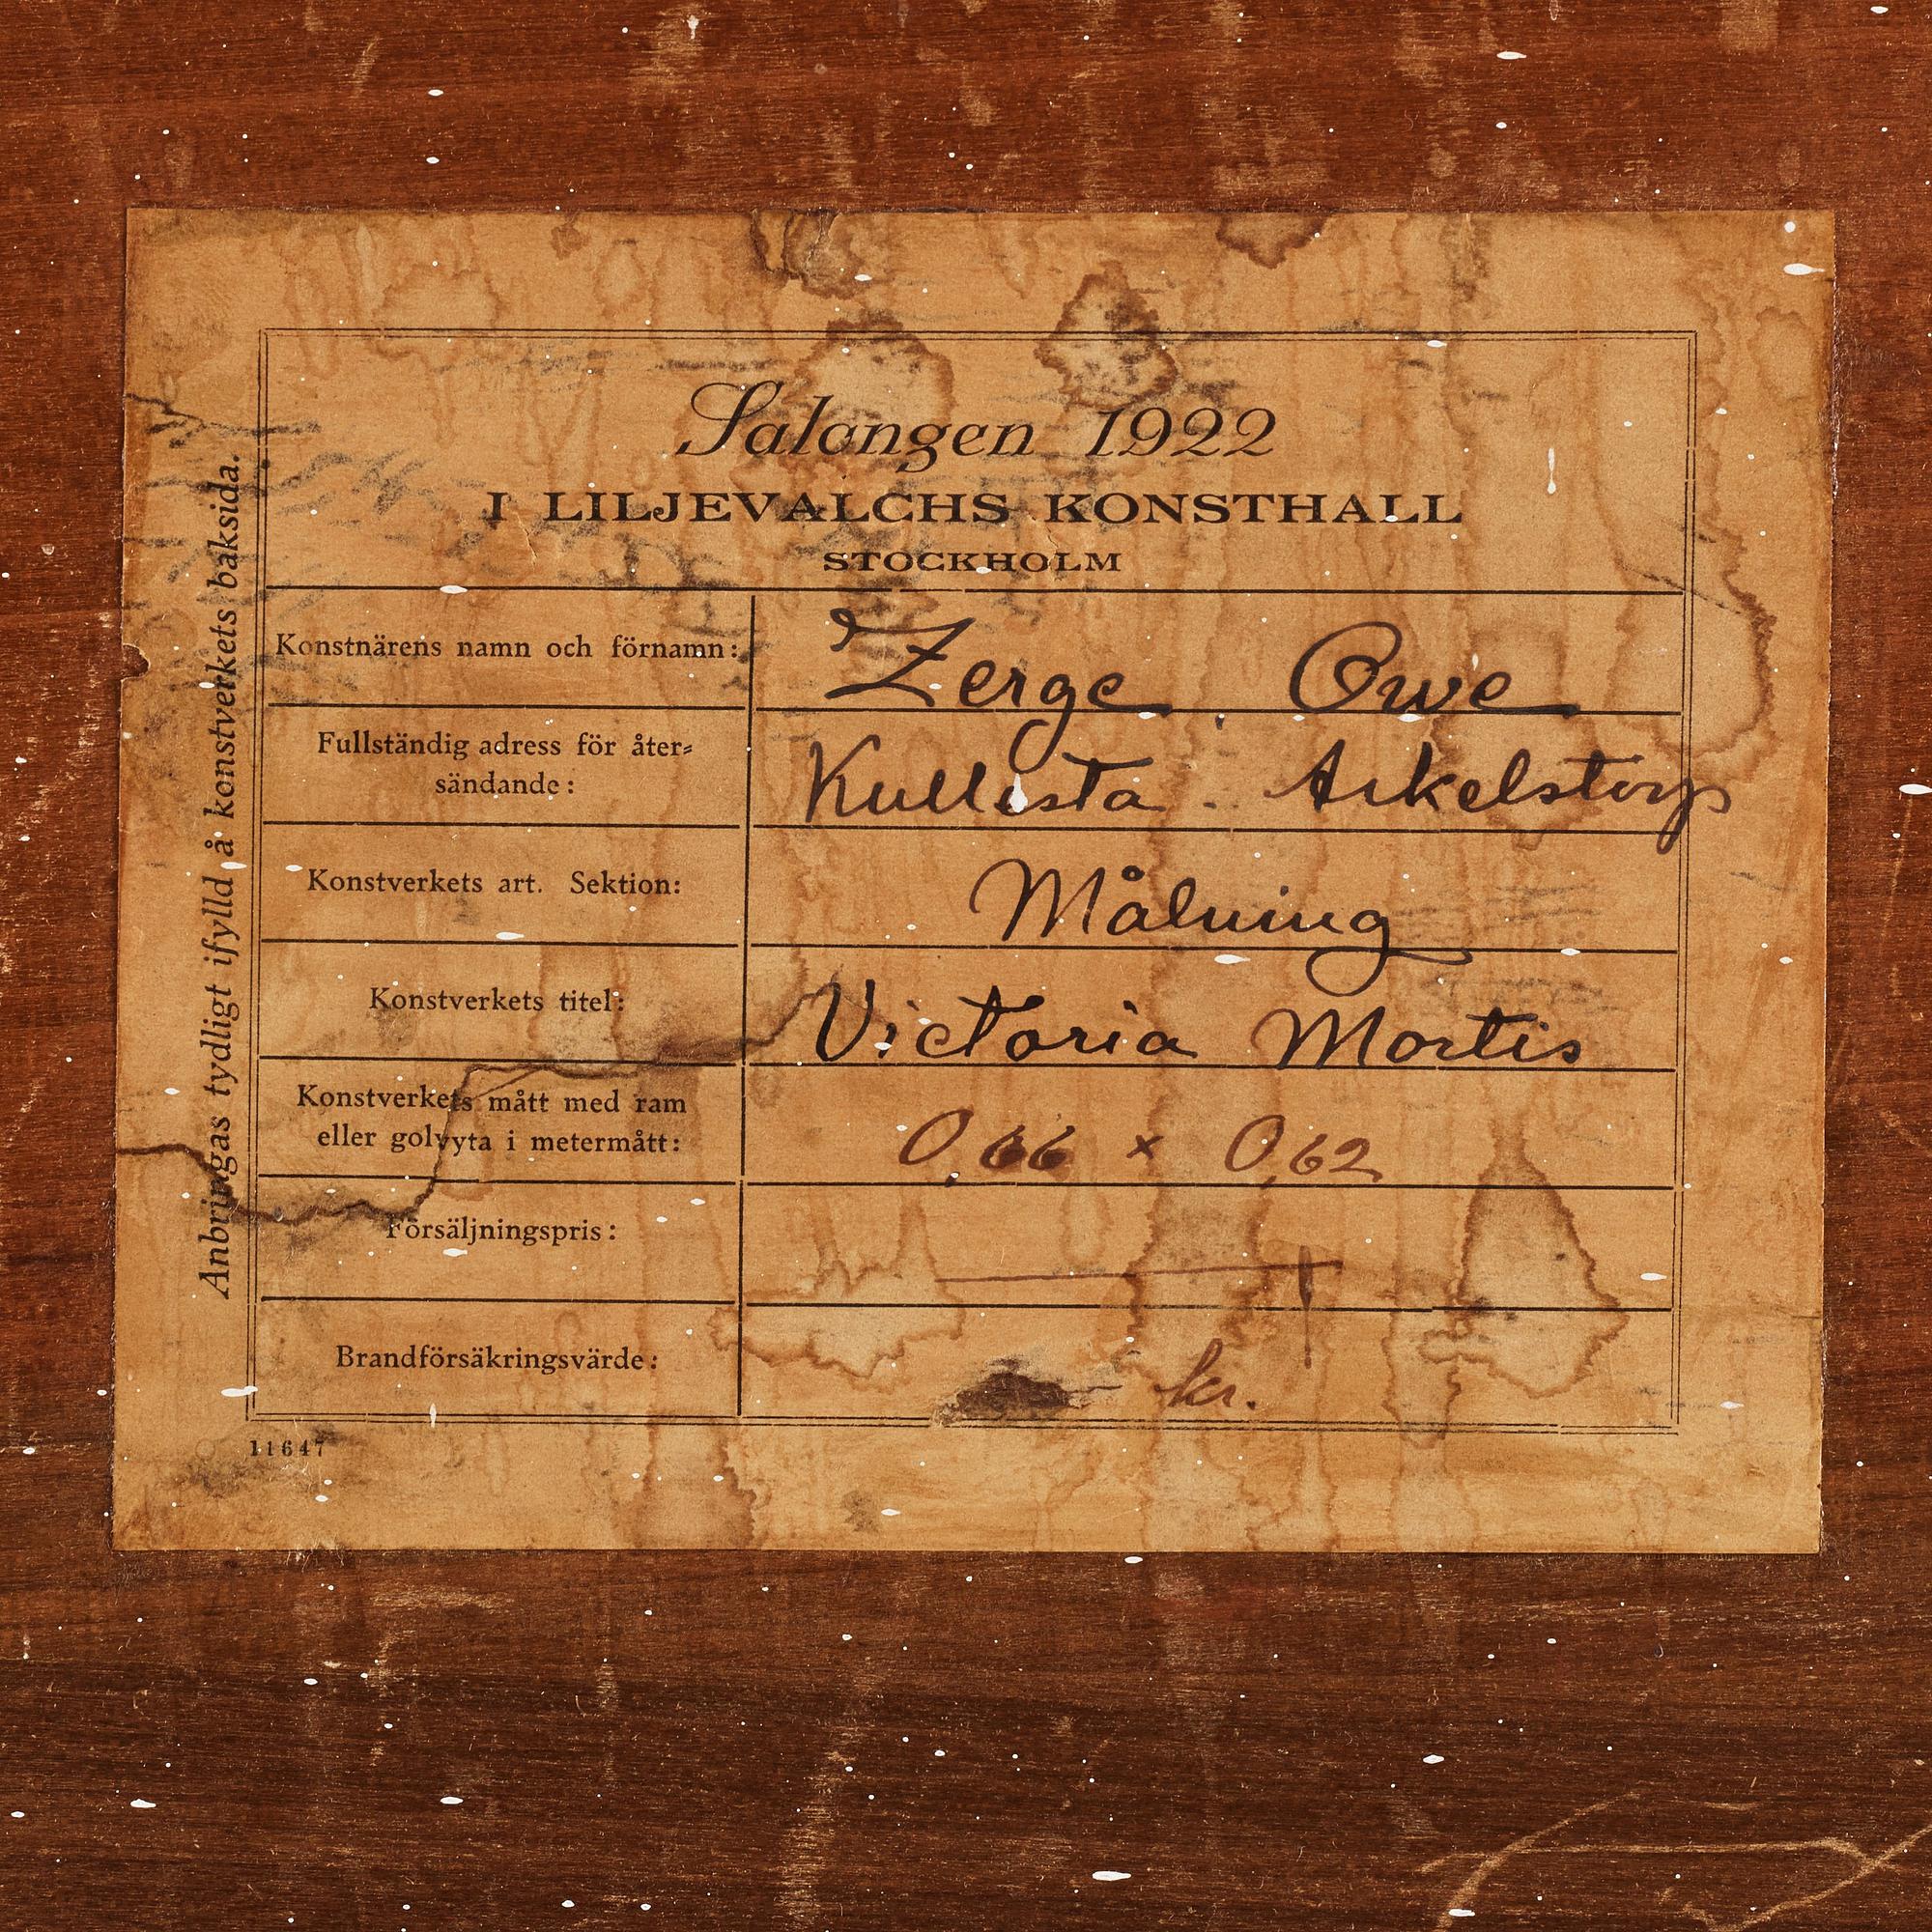 Salongen 1922
I LILJEVALCHS KONSTHALL
STOCKHOLM
Konstnärens namn och förnamn: Zerge Owe
Fullständig adress för åter-
sändande: Kullesta. Arkelstorp
Konstverkets art. Sektion: Målning
Konstverkets titel: Victoria Mortis
Konstverkets mått med ram
eller golvyta i metermått: 0,66 x 0,62
Försäljningspris:
Brandförsäkringsvärde: kr.
11647
Anbringas tydligt ifylld å konstverkets baksida.